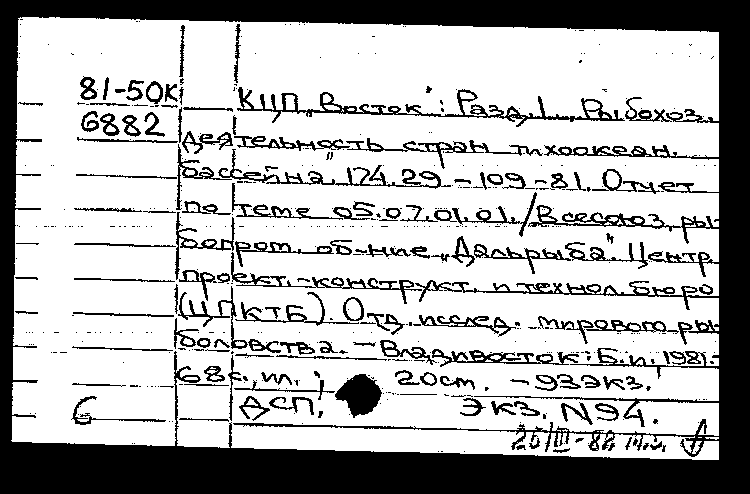 81-50к
6882
КЦП „Восток": Разд. 1 „Рыбохоз.
деятельность стран тихоокеан.
бассейна". 174.29-109-81. Отчет
по теме 05.07.01.01./Всесоюз. ры-
бопром. об-ние „Дальрыба". Центр.
проект.-конструкт. и технол. бюро
(ЦПКТБ). Отд. исслед. мирового ры-
боловства. - Владивосток: Б.и., 1981.-
68с., ил.; 20см. - 93экз.
ДСП. экз. N94.
6
25/III-82